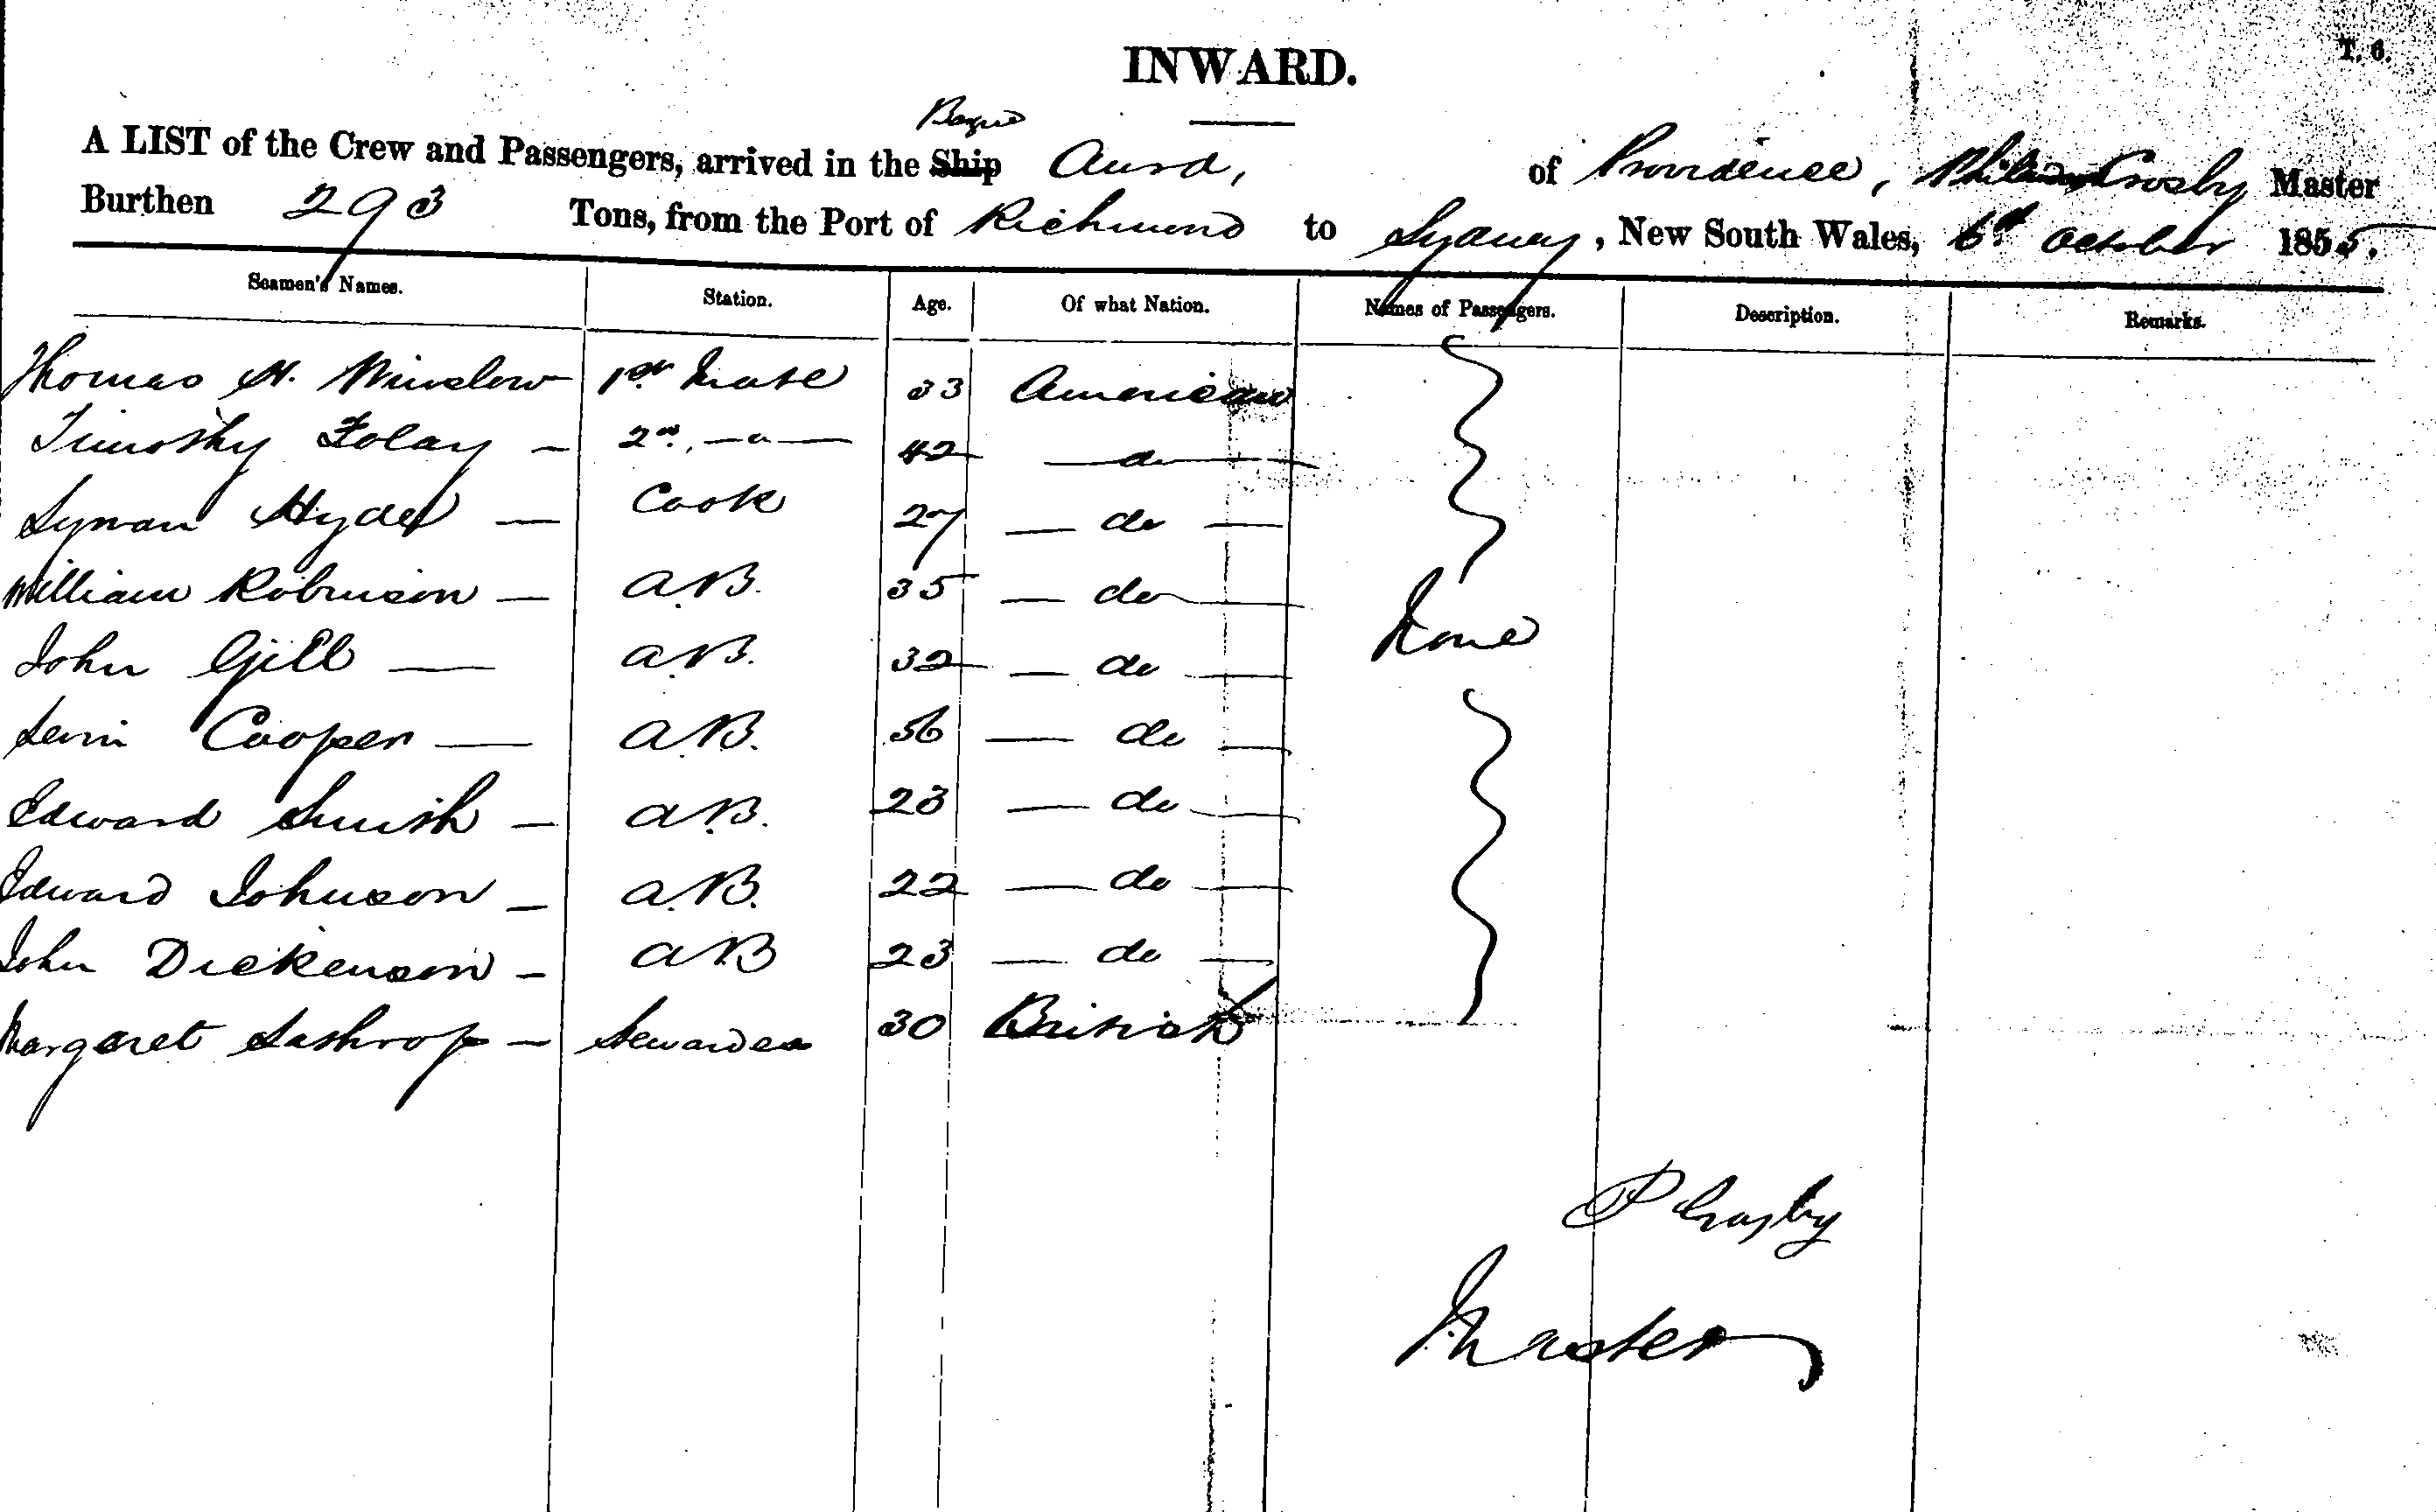 INWARD.
T. 6.
Barque
A LIST of the Crew and Passengers, arrived in the Ship Aura, of Providence, Crosby Master
Burthen 293 Tons, from the Port of Richmond to Sydney, New South Wales, 6th October 1855.
Seamen's Names. Station. Age. Of what Nation. Names of Passengers. Description. Remarks.
Thomas H. Winslow 1st Mate 33 American
Timothy Folay — 2nd —"— 42 — do —
Lyman Hyde — Cook 27 — do —
William Robinson — A.B. 35 — do —
John Gill — A.B. 32 — do — None
Levin Cooper — A.B. 56 — do —
Edward Smith — A.B. 23 — do —
Edward Johnson — A.B. 22 — do —
John Dickenson — A.B 23 — do —
Margaret Lashrop — Stewardess 30 British
P Crosby
Master